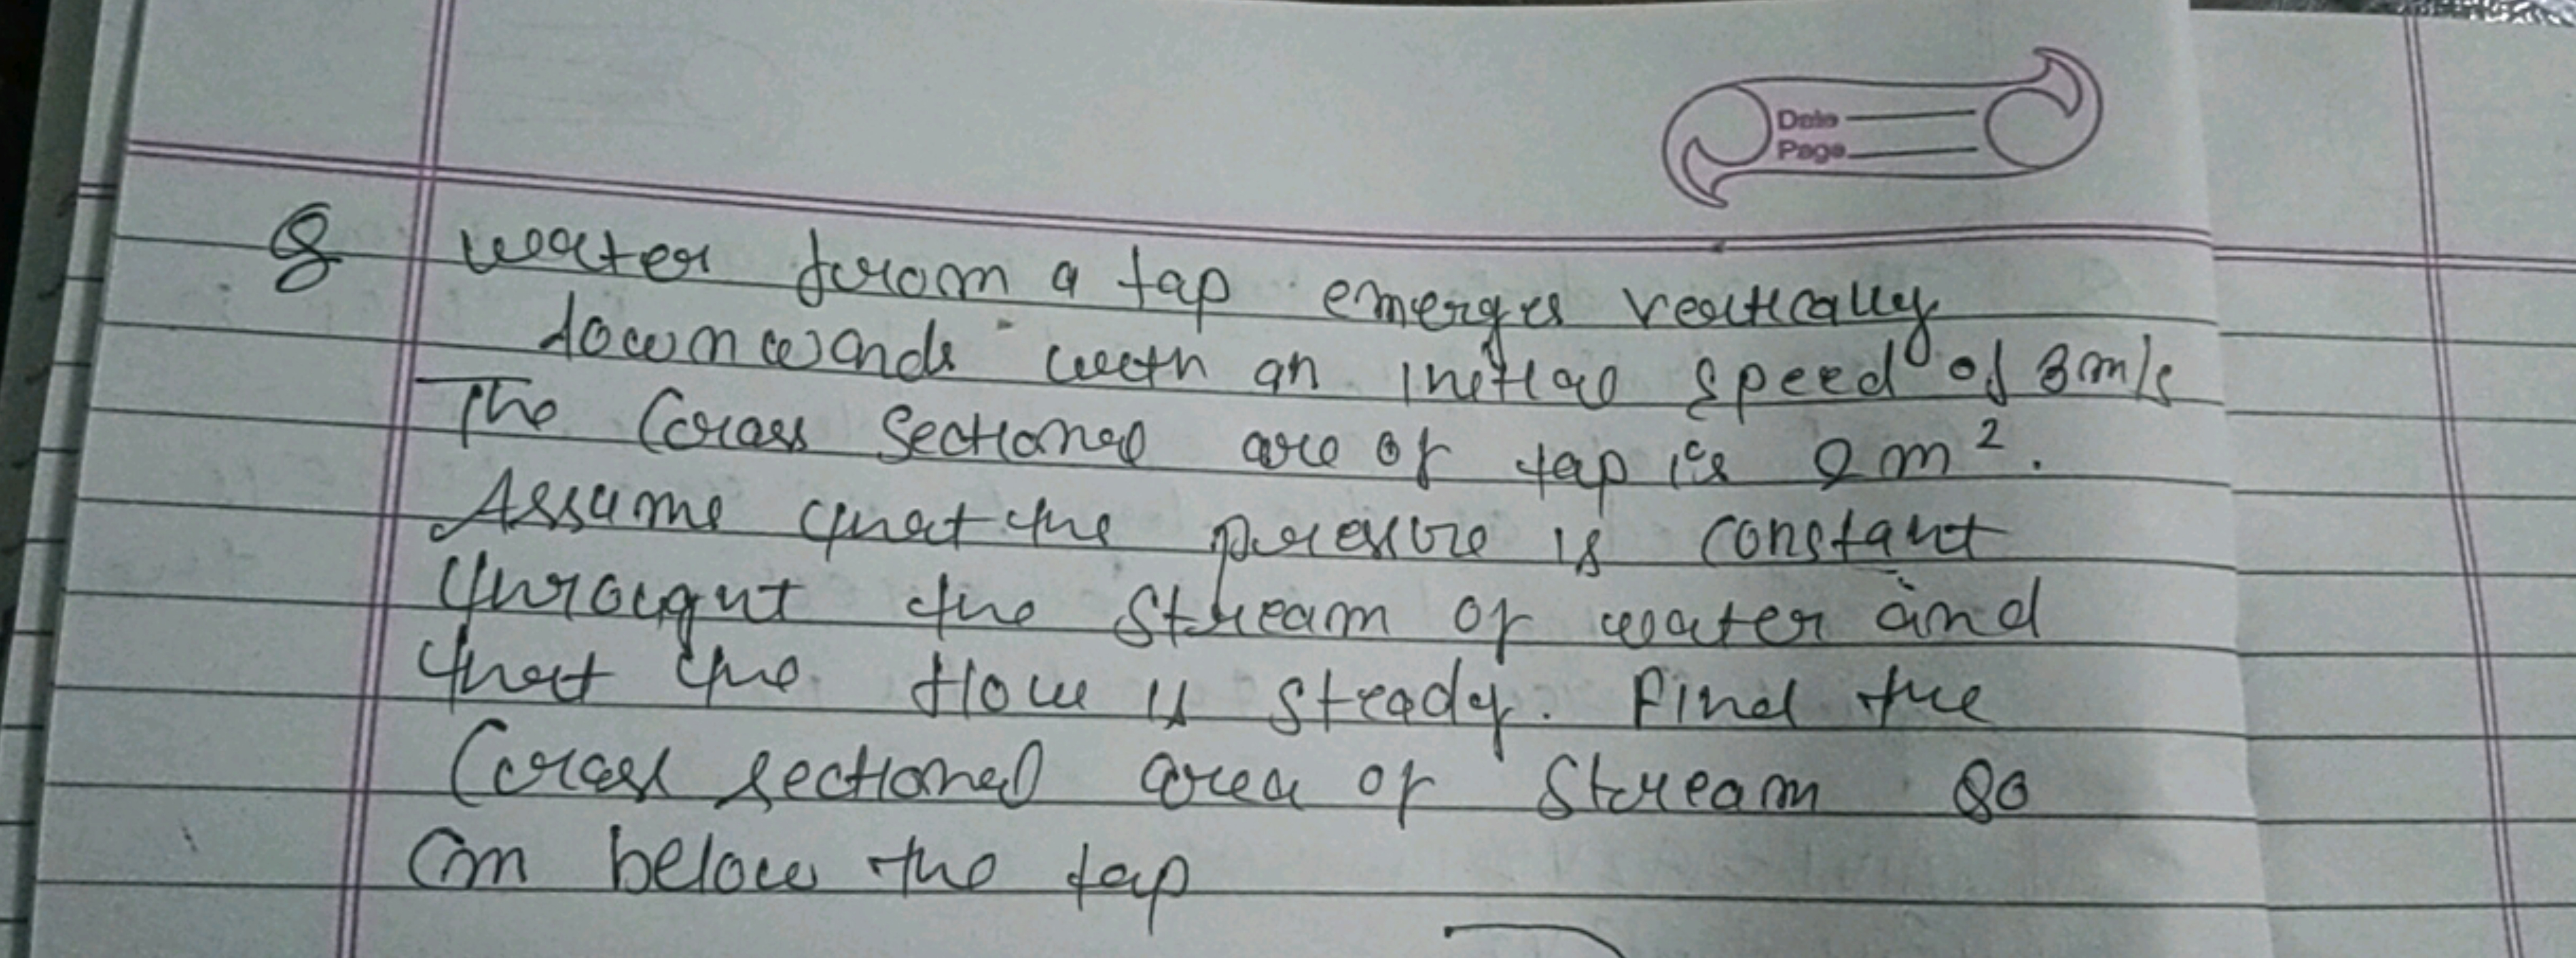 Date
Page
Q water from a tap emerges vertically
downwards with an initial speed of 3m/s
The Cross Sectional are of tap is 2 m².
Assume that the pressure is constant
throught the stream of water and
that the flow is steady. Find the
Cross sectional area of Stream 80
Cm below the tap